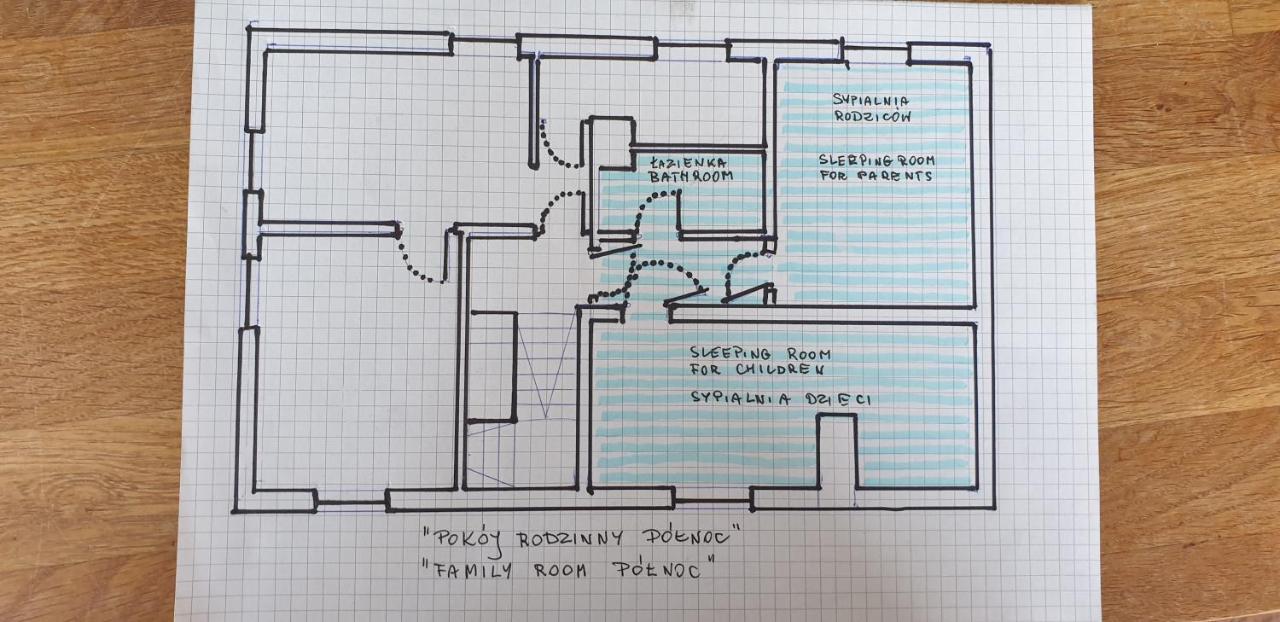 SYPIALNIA
RODZICÓW
SLEEPING ROOM
FOR PARENTS
ŁAZIENKA
BATHROOM
SLEEPING ROOM
FOR CHILDREN
SYPIALNIA DZIECI
"POKÓJ RODZINNY PÓŁNOC"
"FAMILY ROOM PÓŁNOC"